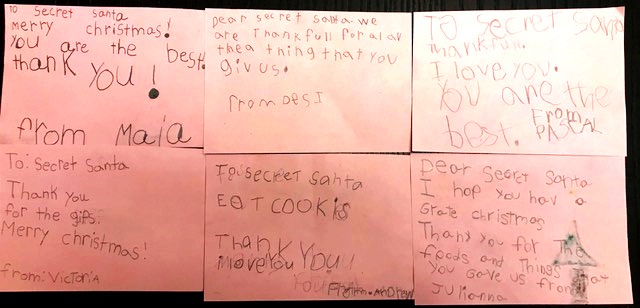 TO Secret santa
merry christmas!
you are the best.
thank you!
from Maia
Dear secret santa. we
are thankfull for alav
thea thing that you
giv us.
from Desi
To secret Santa
thankfull.
I love you.
You are the
best. From
PASCAL
To: Secret Santa
Thank you
for the gifs.
Merry christmas!
from: Victoria
To: secret Santa
EAT COOKIS
Thank You!
From: Andrew
Dear Secret Santa
I hop you hav a
Grate christmas
Thank you for The
foods and Things That
You Gave us from
Julianna